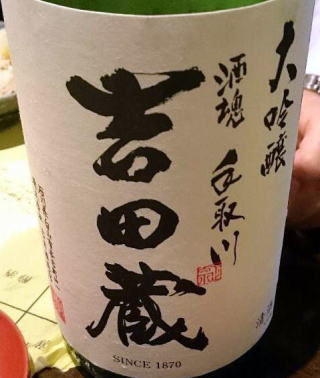 大吟醸
酒魂 手取川
吉田蔵
SINCE 1870
清酒